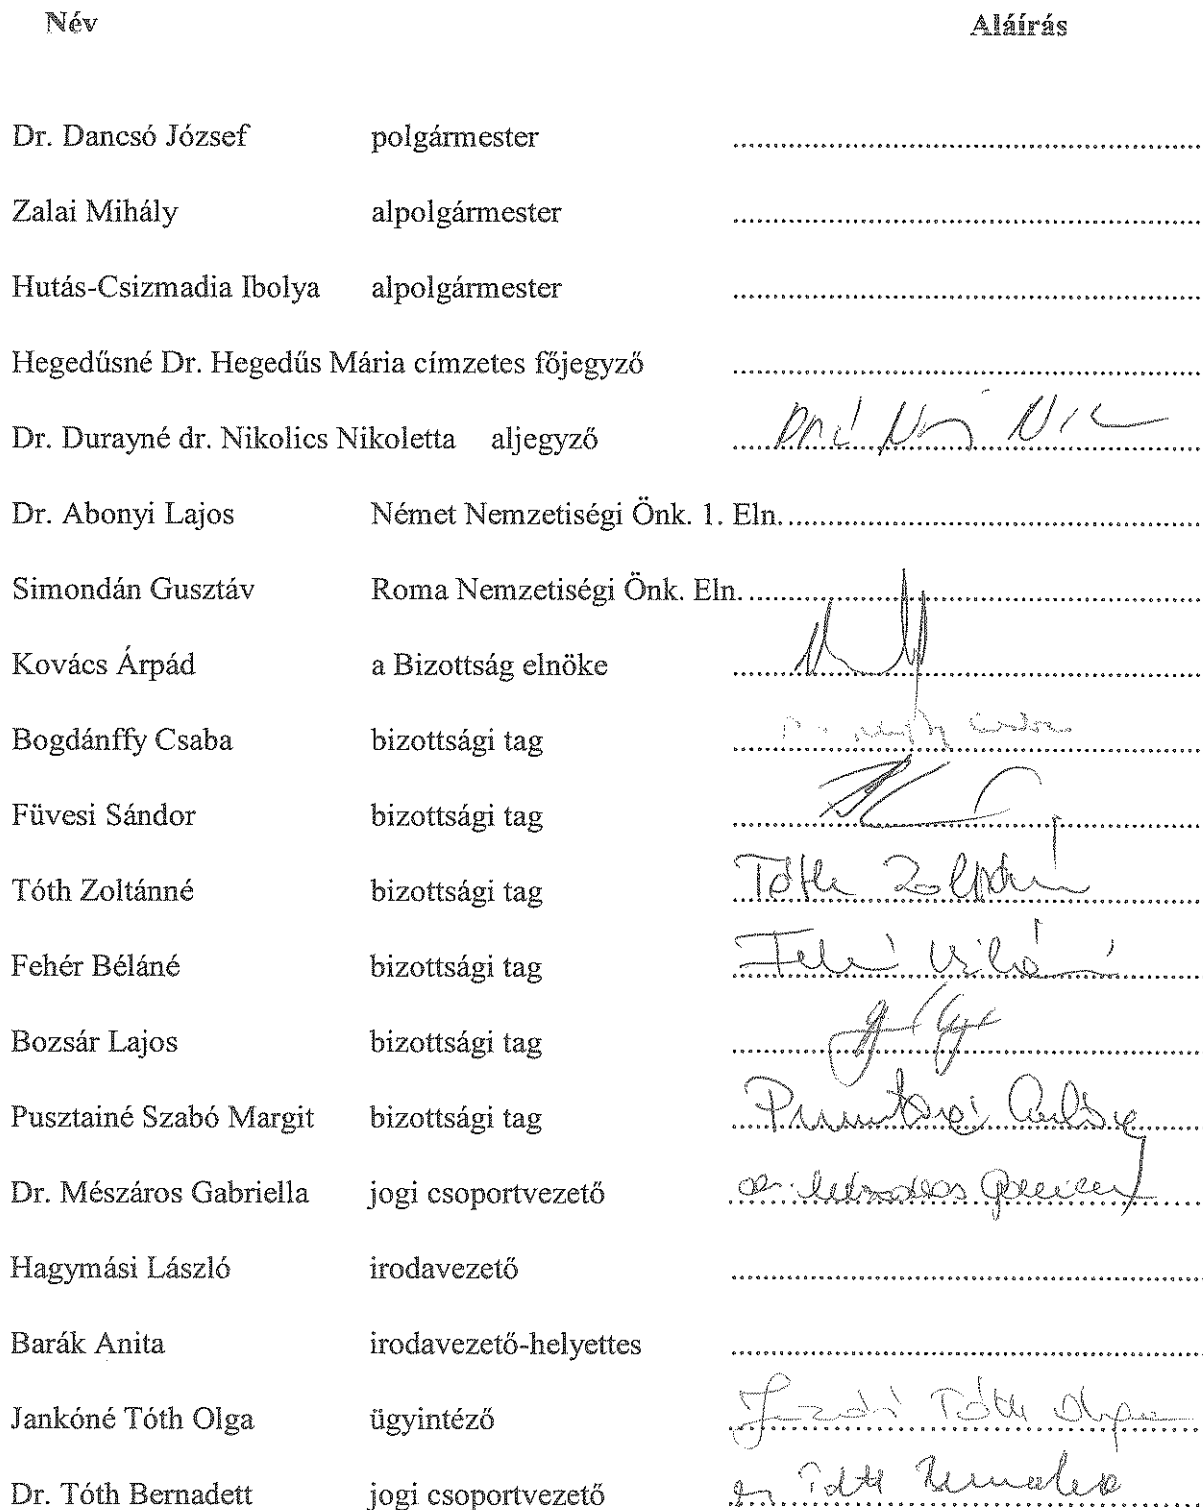 Név Aláírás
Dr. Dancsó József polgármester
Zalai Mihály alpolgármester
Hutás-Csizmadia Ibolya alpolgármester
Hegedűsné Dr. Hegedűs Mária címzetes főjegyző
Dr. Durayné dr. Nikolics Nikoletta aljegyző
Dr. Abonyi Lajos Német Nemzetiségi Önk. 1. Eln.
Simondán Gusztáv Roma Nemzetiségi Önk. Eln.
Kovács Árpád a Bizottság elnöke
Bogdánffy Csaba bizottsági tag
Füvesi Sándor bizottsági tag
Tóth Zoltánné bizottsági tag Tóth Zoltánné
Fehér Béláné bizottsági tag
Bozsár Lajos bizottsági tag
Pusztainé Szabó Margit bizottsági tag
Dr. Mészáros Gabriella jogi csoportvezető
Hagymási László irodavezető
Barák Anita irodavezető-helyettes
Jankóné Tóth Olga ügyintéző Tóth Olga
Dr. Tóth Bernadett jogi csoportvezető Tóth Bernadett